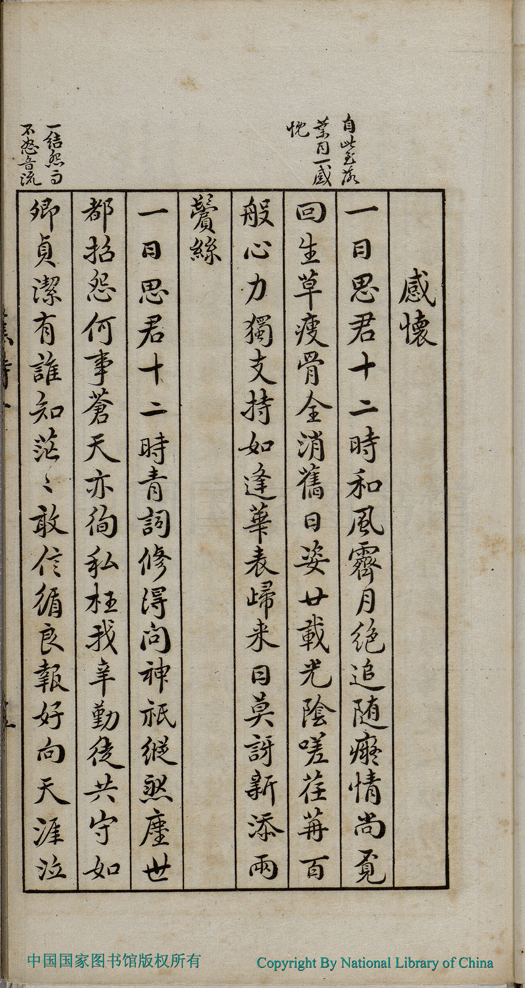 自此至落
葉同一感
感懷
一日思君十二時和風霽月絕追随癡情尚覔
回生草瘦骨全消舊日姿廿載光陰嗟荏苒百
般心力獨支持如逢華表歸来日莫訝新添兩
鬢絲
一日思君十二時青詞修得问神祇縱然塵世
都招怨何事蒼天亦徇私枉我辛勤徒共守如
一結怨而
不怒音流
卿貞潔有誰知茫〻敢信循良報好向天涯泣
中国国家图书馆版权所有
Copyright By National Library of China